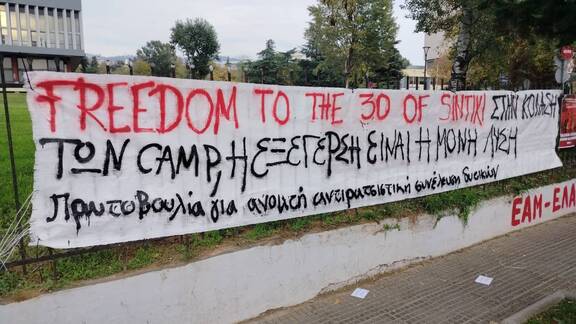 FREEDOM TO THE 30 OF SINTIKI ΣΤΗΝ ΚΟΛΑΣΗ
ΤΩΝ CAMP, Η ΕΞΕΓΕΡΣΗ ΕΙΝΑΙ Η ΜΟΝΗ ΛΥΣΗ
Πρωτοβουλία για ανοικτή αντιρατσιστική συνέλευση δυτικών
ΕΑΜ-ΕΛΑ